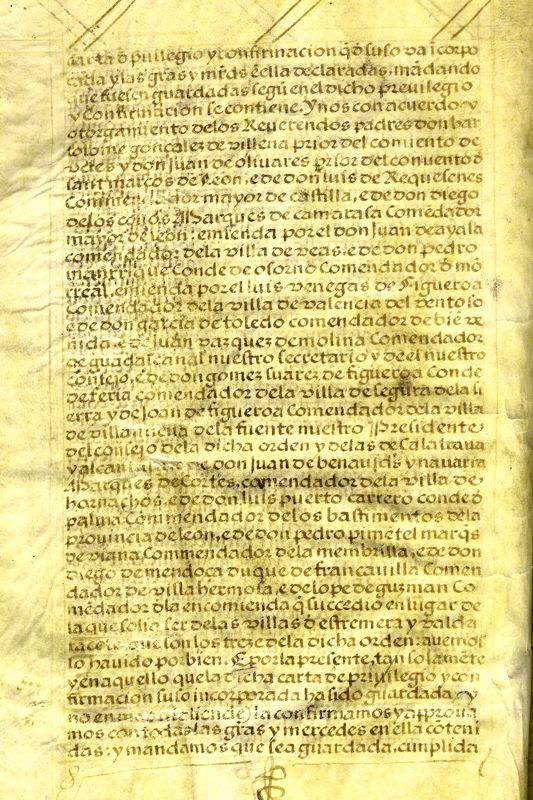 carta d̄ priuilegio y confirmacion q̄ d̄ suso va ĩcorpo
rada y las gras y mr̃ds ẽ ella declaradas, mãdando
que fuesen guardadas segũ en el dicho preuilegio
y confirmacion se contiene. Y nos con acuerdo y
otorgamiento delos Reuerendos padres don bar
tolome gonçalez de villena prior del conuento de
veles y don Juan de oliuares prior del conuento d̄
sant marcos de leon, e de don luis de Requesenes
Commendador mayor de castilla, e de don diego
delos couos Marques de camarasa Comẽdador
mayor de leon: emienda por el don Juan de ayala
comendador dela villa de veas, e de don pedro
manrrique Conde de osorno Comendador d̄ mõ
rreal, emienda por el luis venegas de figueroa
Comendador dela villa de valencia del ventoso
e de don garcia de toledo comendador de biẽ ve
nida, e de Juan vazquez de molina Comendador
de guadalcanal nuestro secretario y de el nuestro
consejo, e de don gomez suarez de figueroa Conde
de feria comendador dela villa de segura dela si
erra y de Joan de figueroa Comendador dela villa
de villanueua dela fuente nuestro Presidente
del consejo dela dicha orden y delas de calatraua
y alcantara e de don Juan de benauids y nauarra
Marques de Cortes, comendador dela villa de
hornachos, e de don luis puerto carrero conde d̄
palma Commendador delos bastimentos dela
prouincia de leon, e de don pedro pimẽtel marq̄s
de viana Commendador dela membrilla, e de don
diego de mendoça duque de francauilla Comen
dador de villa hermosa, e de lope de guzman Co
mẽdador d̄la encomienda q̄ succedio en lugar de
la que solia ser delas villas d̄ estremera y valda
racete que son los treze dela dicha orden: auemos
lo hauido por bien. E por la presente, tan solamẽte
y en aquello que la dicha carta de priuilegio y con
firmacion suso incorporada ha sido guardada y
no en mas (o aliende) la confirmamos y approua
mos con todas las gras y mercedes en ella cõteni
das: y mandamos que sea guardada, cunplida